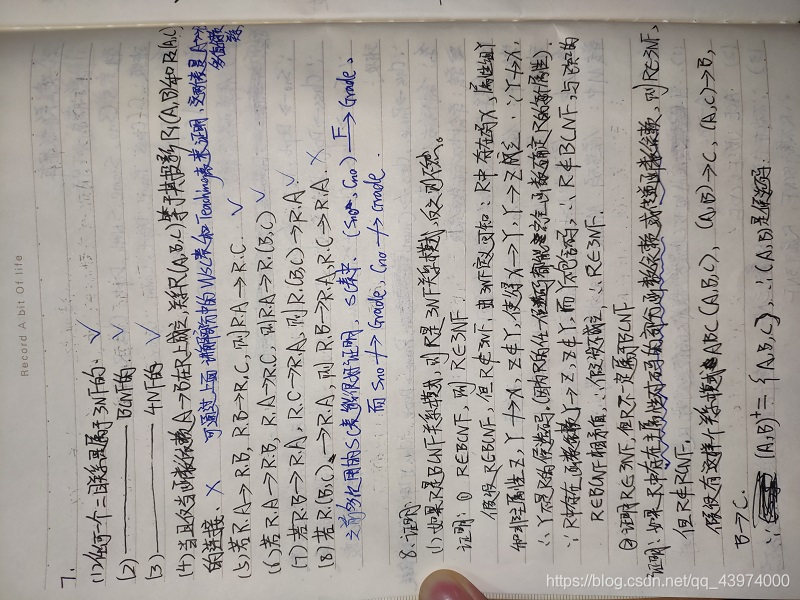 Record A bit Of life
7.
(1) 任何一个二目关系是属于3NF的. ✓
(2) ——— BCNF的 ✓
(3) ——— 4NF的 ✓
(4) 当且仅当函数依赖A→B在R上成立, 关系R(A,B,C)等于其投影R₁(A,B)和R₂(A,C)
的连接. ✗ 可通过上面 的WSC表和Teaching表来证明,
(5) 若R.A→R.B, R.B→R.C, 则R.A→R.C. ✓
(6) 若R.A→R.B, R.A→R.C, 则R.A→R.(B,C) ✓
(7) 若R.B→R.A, R.C→R.A, 则R.(B,C)→R.A ✓
(8) 若R.(B,C)→R.A, 则R.B→R.A, R.C→R.A. ✗
之前多次用的SC表能很好证明, S表中, (Sno, Cno) F→ Grade.
而 Sno ↛ Grade, Cno ↛ Grade.
8. 证明:
(1) 如果R是BCNF关系模式, 则R是3NF关系模式, 反之则不然.
证明: ① R∈BCNF, 则 R∈3NF.
假设R∈BCNF, 但R∉3NF, 由3NF定义可知: R中存在码X, 属性组Y
和非主属性Z, Y↛X, Z⊄Y, 使得X→Y, Y→Z成立. ∵Y↛X,
∴Y不是R的候选码.
∵R中存在函数依赖Y→Z, Z⊄Y, 而Y不包含码, ∴R∉BCNF, 与已知的
R∈BCNF相矛盾, ∴假设不成立, ∴R∈3NF.
② 证明R∈3NF, 但R不一定属于BCNF.
证明: 如果R中存在主属性对码的部分函数依赖或传递函数依赖, 则R∈3NF,
但R∉BCNF.
假设有这样个关系模式 ABC(A,B,C), (A,B)→C, (A,C)→B,
B→C.
∴ (A,B)⁺={A,B,C}, ∴(A,B)是候选码.
https://blog.csdn.net/qq_43974000